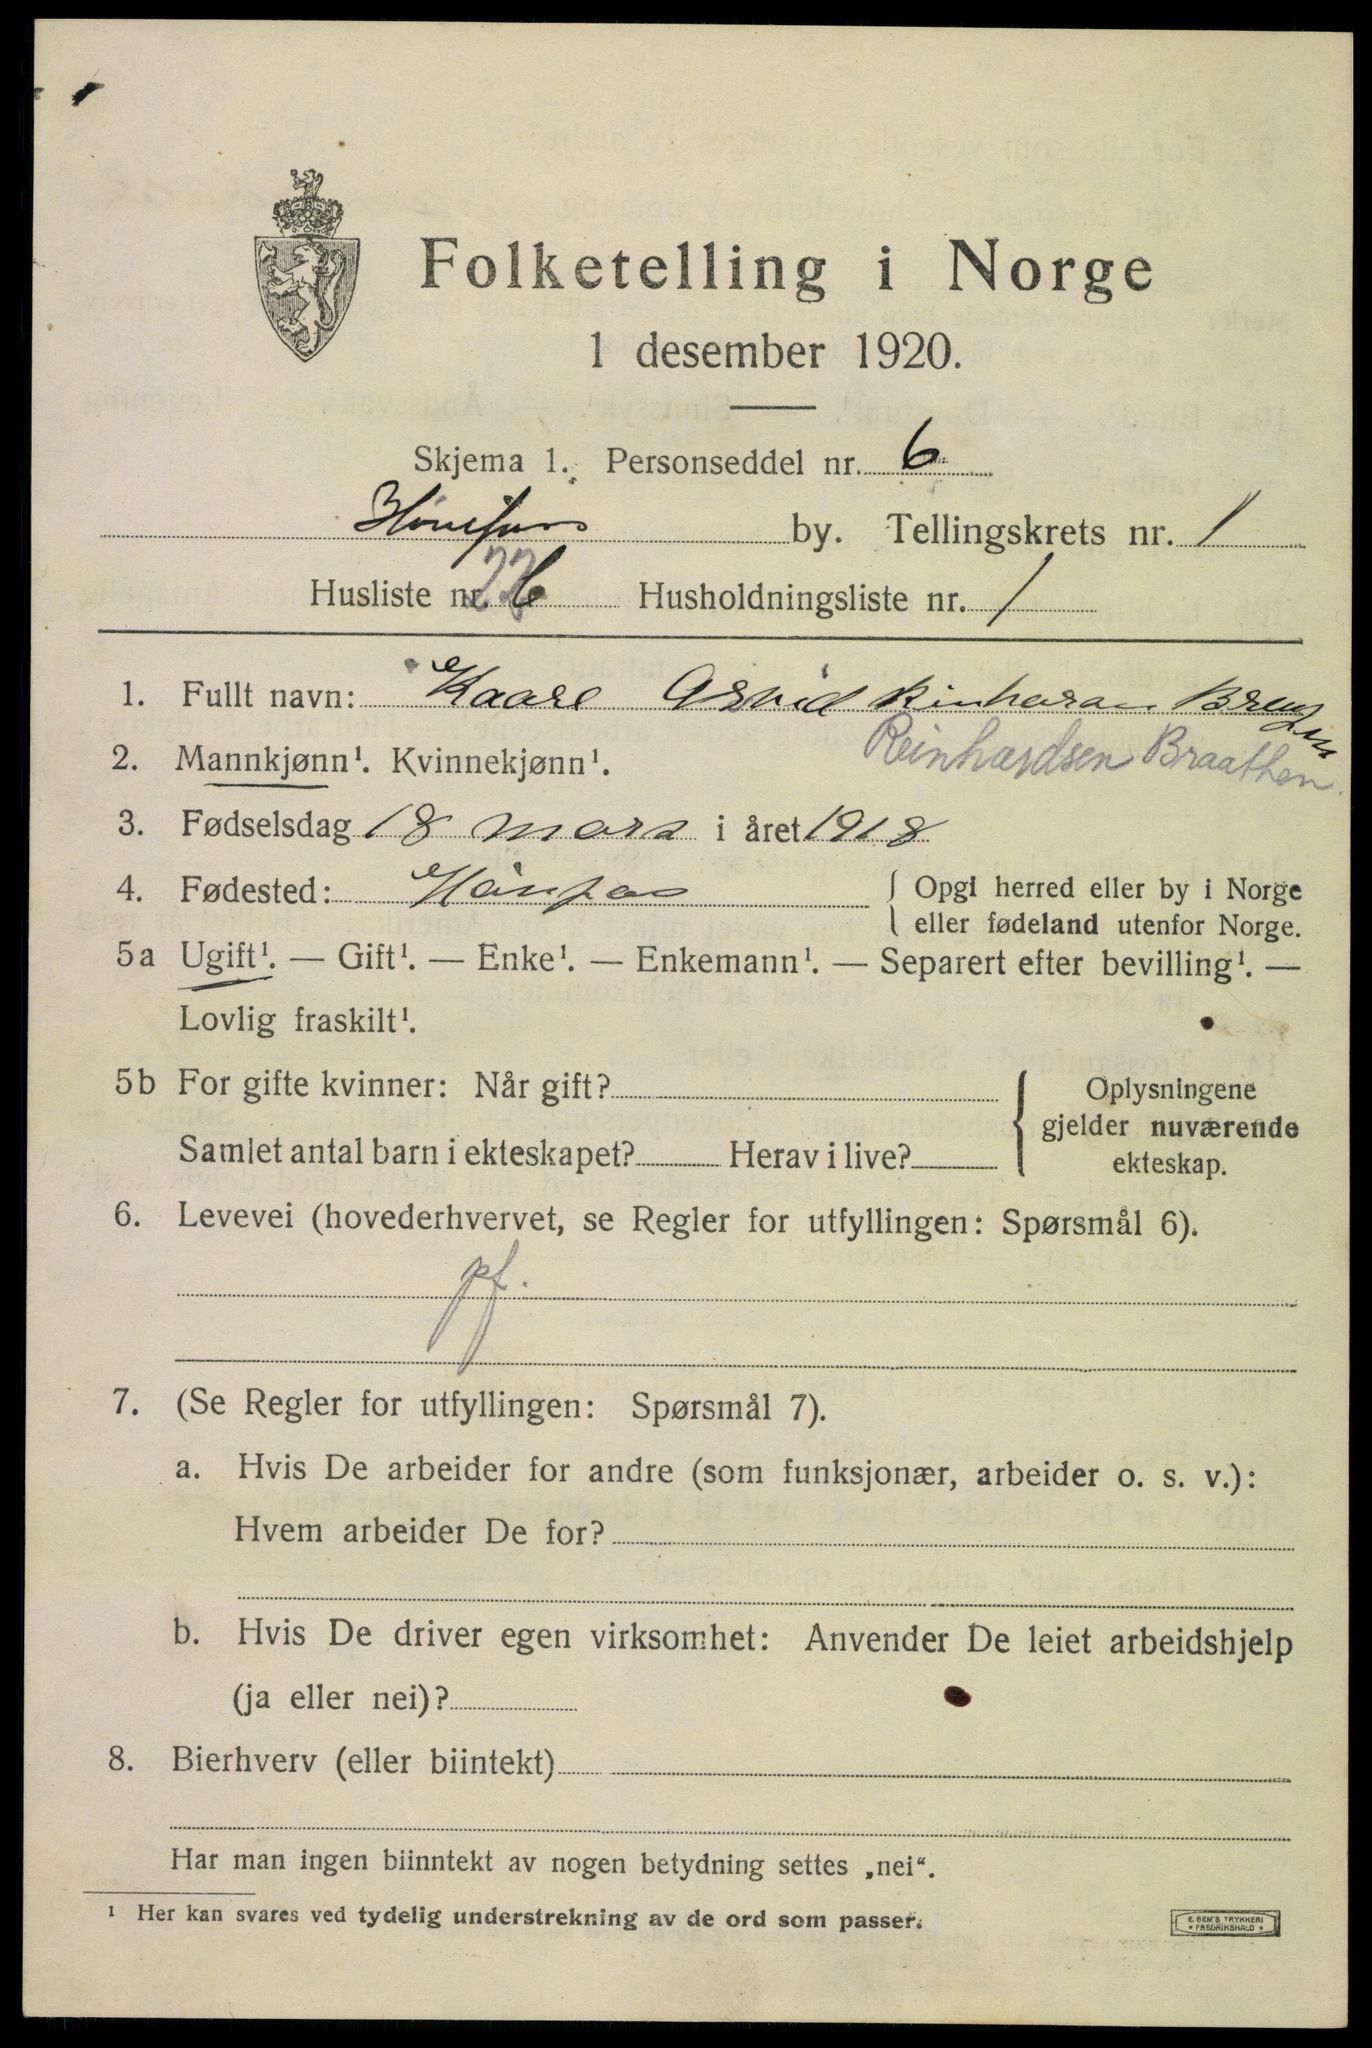 Folketelling i Norge
1 desember 1920.
Skjema 1. Personseddel nr. 6
Hønefoss by. Tellingskrets nr. 1
Husliste nr. 6 Husholdningsliste nr. 1
1. Fullt navn: Kaare Arvid
Reinhardsen Braathen
2. Mannkjønn¹. Kvinnekjønn¹.
3. Fødselsdag 18 mars i året 1918
4. Fødested: { Opgi herred eller by i Norge
eller fødeland utenfor Norge.
5a Ugift¹. — Gift¹. — Enke¹. — Enkemann¹. — Separert efter bevilling¹. —
Lovlig fraskilt¹.
5b For gifte kvinner: Når gift? { Oplysningene
gjelder nuværende
Samlet antal barn i ekteskapet? Herav i live? ekteskap.
6. Levevei (hovederhvervet, se Regler for utfyllingen: Spørsmål 6).
pf.
7. (Se Regler for utfyllingen: Spørsmål 7).
a. Hvis De arbeider for andre (som funksjonær, arbeider o. s. v.):
Hvem arbeider De for?
b. Hvis De driver egen virksomhet: Anvender De leiet arbeidshjelp
(ja eller nei)?
8. Bierhverv (eller biintekt)
Har man ingen biinntekt av nogen betydning settes „nei“.
¹ Her kan svares ved tydelig understrekning av de ord som passer.
E. SEM'S TRYKKERI
* FREDRIKSHALD *